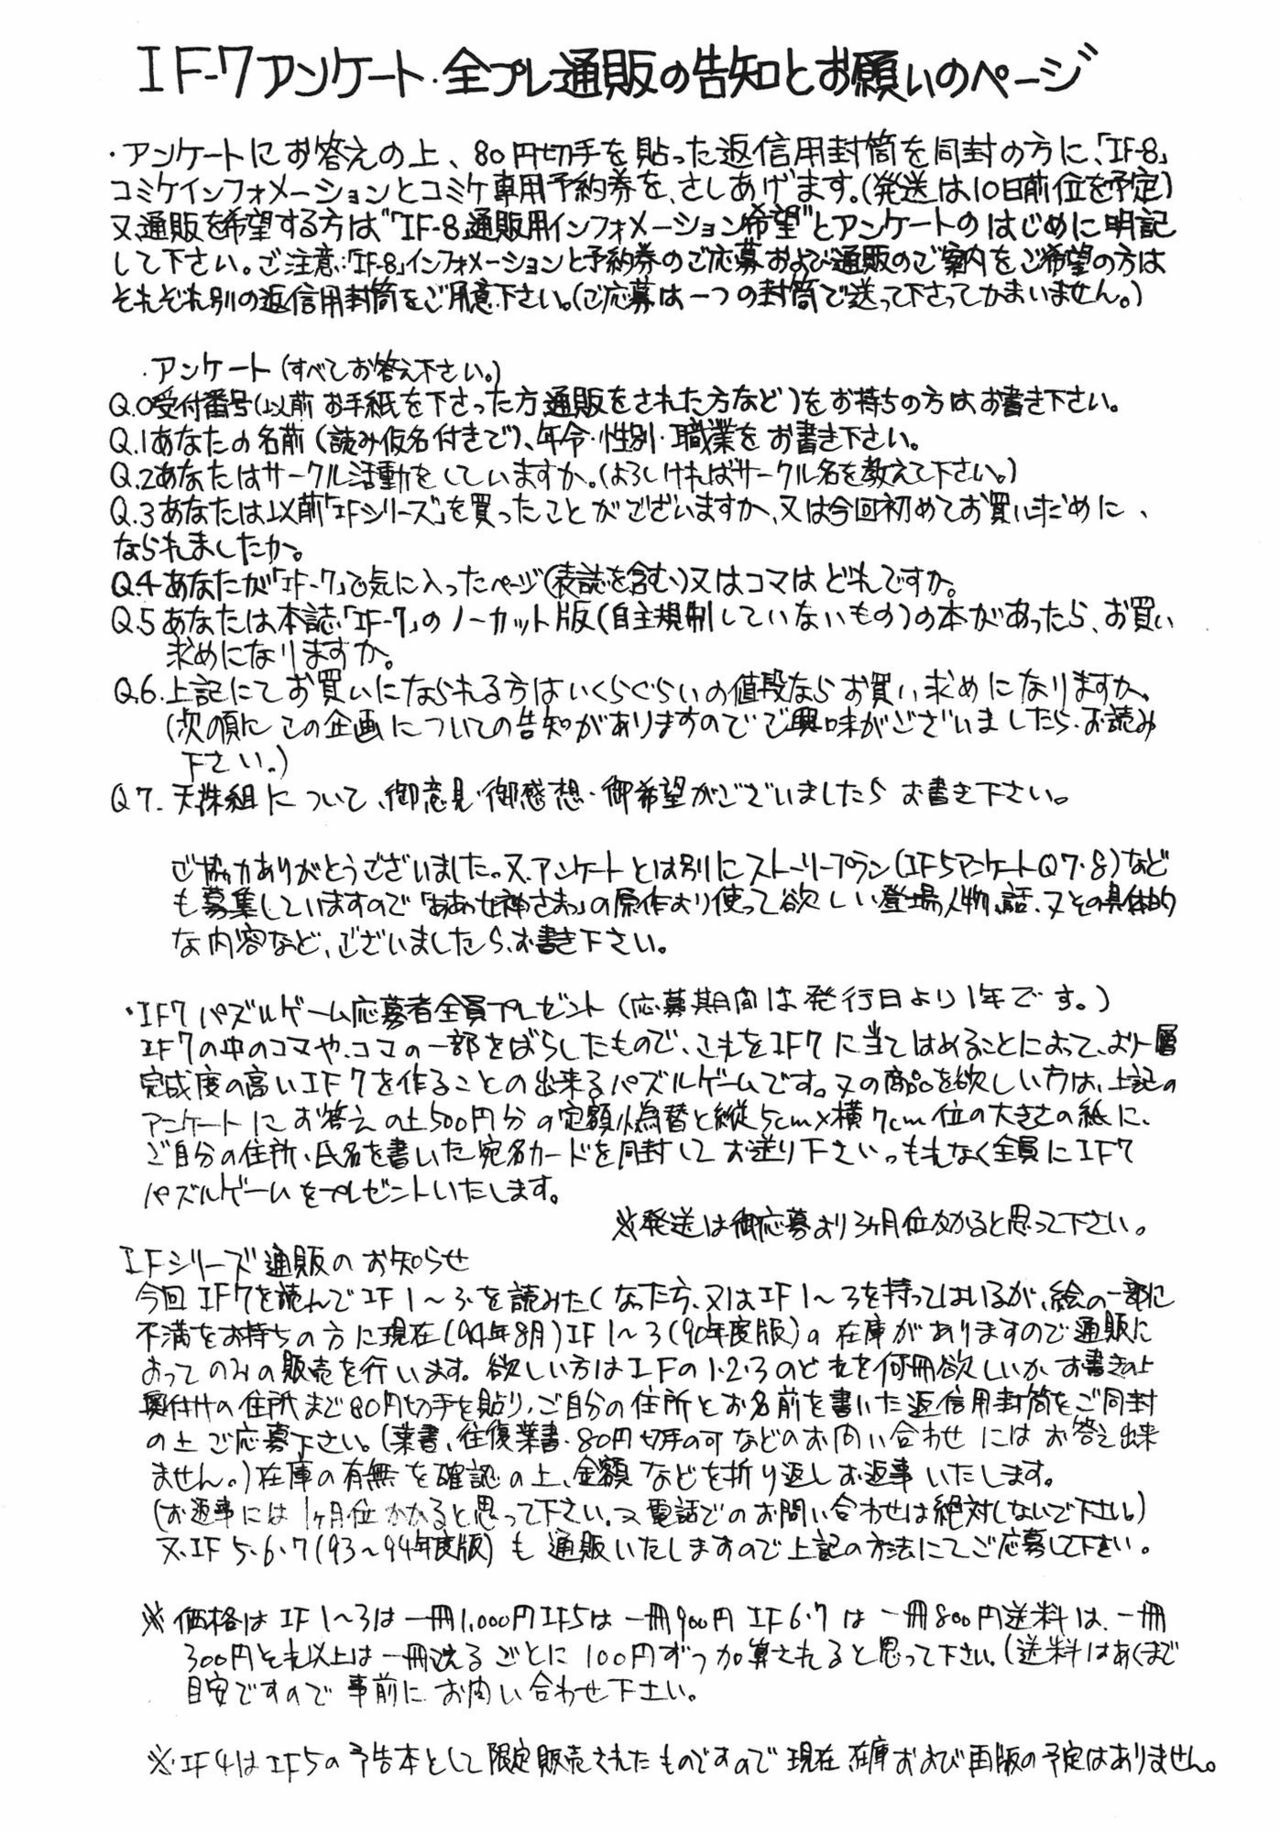 IF-7アンケート・全プレ通販の告知とお願いのページ
・アンケートにお答えの上、80円切手を貼った返信用封筒を同封の方に、「IF-8」
コミケインフォメーションとコミケ専用予約券を、さしあげます。(発送は10日前位を予定)
又、通販を希望する方は"IF-8通販用インフォメーション希望"とアンケートのはじめに明記
して下さい。ご注意:「IF-8」インフォメーションと予約券のご応募および通販のご案内をご希望の方は
それぞれ別の返信用封筒をご用意下さい。(ご応募は一つの封筒で送って下さってかまいません。)
・アンケート(すべてお答え下さい。)
Q.0受付番号(以前お手紙を下さった方通販をされた方など)をお持ちの方はお書き下さい。
Q.1あなたの名前(読み仮名付きで)、年令・性別・職業をお書き下さい。
Q.2あなたはサークル活動をしていますか。(よろしければサークル名を教えて下さい。)
Q.3あなたは以前「IFシリーズ」を買ったことがございますか、又は今回初めてお買い求めに、
なられましたか。
Q.4あなたが「IF-7」で気に入ったページ(表誌を含む)又はコマはどれですか。
Q.5あなたは本誌「IF-7」のノーカット版(自主規制していないもの)の本があったら、お買い
求めになりますか。
Q.6.上記にてお買いになられる方はいくらぐらいの値段ならお買い求めになりますか。
(次の頃にこの企画についての告知がありますのでご興味がございましたら・お読み
下さい。)
Q7. 天誅組について、御意見・御感想・御希望がございましたらお書き下さい。
ご協力ありがとうございました。又、アンケートとは別にストーリープラン(IF5アンケートQ7・8)など
も募集していますので「ああっ女神さまっ」の原作より使って欲しい登場人物、話、又その具体的
な内容など、ございましたら、お書き下さい。
・IF7パズルゲーム応募者全員プレゼント(応募期間は発行日より1年です。)
IF7の中のコマや、コマの一部をばらしたもので、これをIF7に当てはめることによって、より一層
完成度の高いIF7を作ることの出来るパズルゲームです。又の商品を欲しい方は、上記の
アンケートにお答えの上500円分の定額小為替と縦5cm×横7cm位の大きさの紙に、
ご自分の住所、氏名を書いた宛名カードを同封してお送り下さい。もれなく全員にIF7
パズルゲームをプレゼントいたします。
※発送は御応募より3ヶ月位かかると思って下さい。
IFシリーズ通販のお知らせ
今回IF7を読んでIF1〜3を読みたくなった方、又はIF1〜3を持ってはいるが、絵の一部に
不満をお持ちの方に現在(94年8月)IF1〜3(90年度版)の在庫がありますので通販に
よってのみの販売を行います。欲しい方はIFの1・2・3のどれを何冊欲しいか、お書きの上
奥付けの住所まで80円切手を貼り、ご自分の住所とお名前を書いた返信用封筒をご同封
の上ご応募下さい。(葉書、往復葉書・80円切手の可などのお問い合わせにはお答え出来
ません。)在庫の有無を確認の上、金額などを折り返しお返事いたします。
(お返事には1ヶ月位かかると思って下さい。又電話でのお問い合わせは絶対しないで下さい)
又、IF5・6・7(93〜94年度版)も通販いたしますので上記の方法にてご応募して下さい。
※価格はIF1〜3は一冊1,000円IF5は一冊900円IF6・7は一冊800円送料は、一冊
300円それ以上は一冊送るごとに100円ずつ加算されると思って下さい。(送料はあくまで
目安ですので事前にお問い合わせ下さい。
※IF4はIF5の予告本として限定販売されたものですので現在在庫および再版の予定はありません。